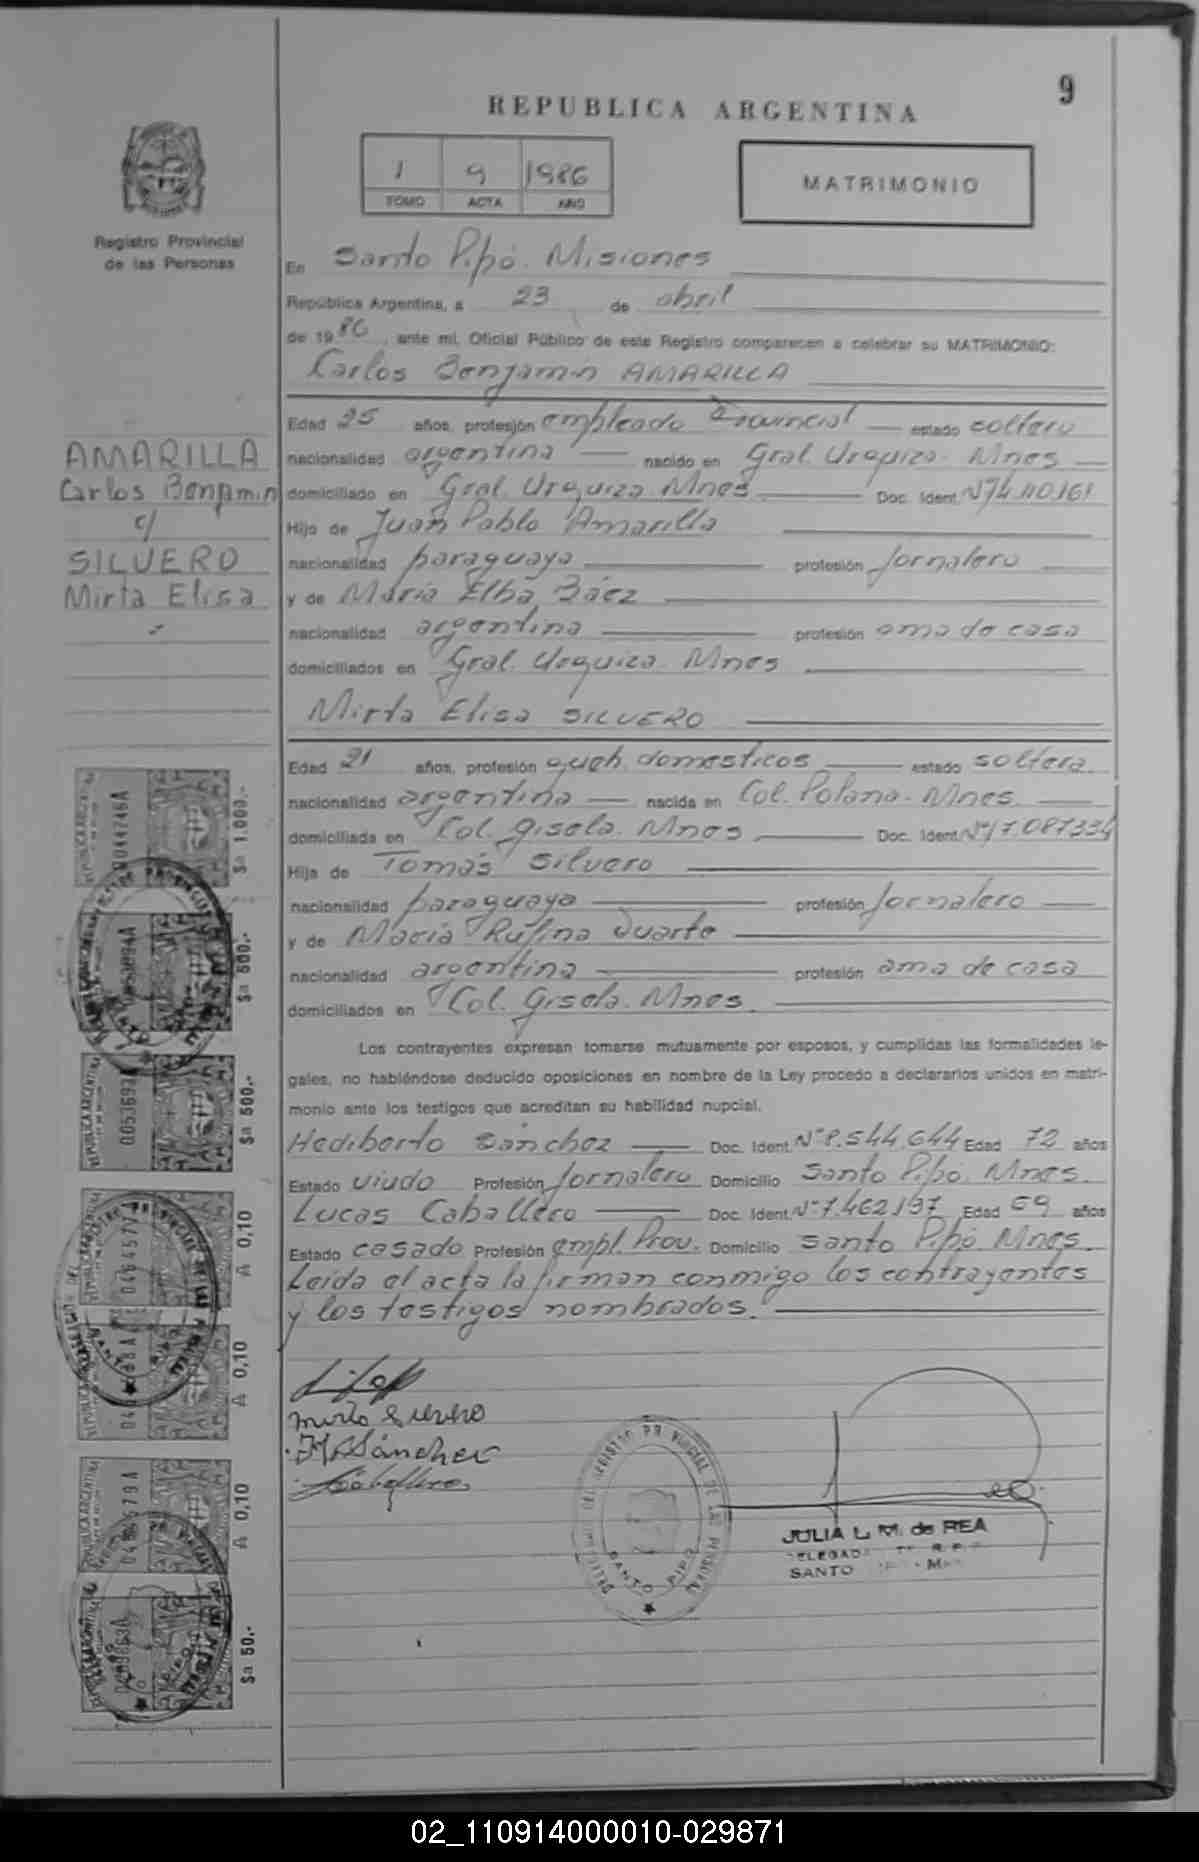 9
REPUBLICA ARGENTINA
1 9 1986
TOMO ACTA AÑO
MATRIMONIO
Registro Provincial
de las Personas
En Santo Pipó. Misiones
República Argentina, a 23 de abril
de 1986, ante mí, Oficial Público de este Registro comparecen a celebrar su MATRIMONIO:
Carlos Benjamin AMARILLA
AMARILLA
Carlos Benjamin
c/
SILVERO
Mirta Elisa
Edad 25 años, profesión empleado Provincial estado soltero
nacionalidad argentina nacido en Gral. Urquiza. Mnes
domiciliado en Gral. Urquiza. Mnes Doc. Ident. Nº14.110.161
Hijo de Juan Pablo Amarilla
nacionalidad paraguaya profesión jornalero
y de María Elba Báez
nacionalidad argentina profesión ama de casa
domiciliados en Gral. Urquiza. Mnes
Mirta Elisa SILVERO
Edad 21 años, profesión queh. domesticos estado soltera
nacionalidad argentina nacida en Col. Polana. Mnes.
domiciliada en Col. Gisela. Mnes Doc. Ident. Nº17.087.334
Hija de Tomás Silvero
nacionalidad paraguaya profesión jornalero
y de María Rufina Duarte
nacionalidad argentina profesión ama de casa
domiciliados en Col. Gisela. Mnes.
Los contrayentes expresan tomarse mutuamente por esposos, y cumplidas las formalidades le-
gales, no habiéndose deducido oposiciones en nombre de la Ley procedo a declararlos unidos en matri-
monio ante los testigos que acreditan su habilidad nupcial.
Hediberto Sánchez Doc. Ident. Nº 8.544.644 Edad 72 años
Estado viudo Profesión jornalero Domicilio Santo Pipó. Mnes.
Lucas Caballero Doc. Ident. Nº 7.462.197 Edad 69 años
Estado casado Profesión empl. Prov. Domicilio Santo Pipó Mnes.
Leida el acta la firman conmigo los contrayentes
y los testigos nombrados.
Mirta Silvero
Sánchez
Caballero
JULIA L. M. de REA
SANTO
SANTO PIPO
REPUBLICA ARGENTINA
$a 1.000.-
$a 500.-
$a 500.-
A 0,10
A 0,10
A 0,10
$a 50.-
02_110914000010-029871